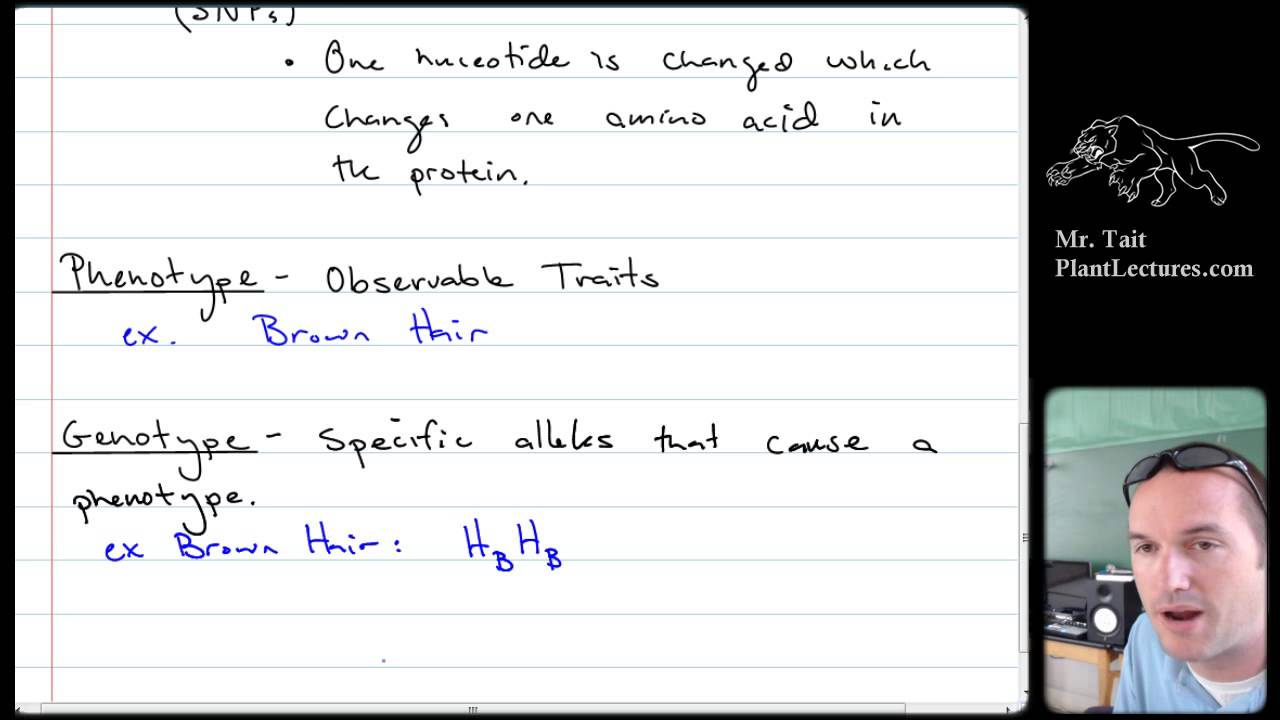 (SNPs)
• One nuceotide is changed which
changes one amino acid in
the protein.
Phenotype - Observable Traits
ex. Brown Hair
Genotype - Specific alleles that cause a
phenotype.
ex Brown Hair: H_B H_B
Mr. Tait
PlantLectures.com